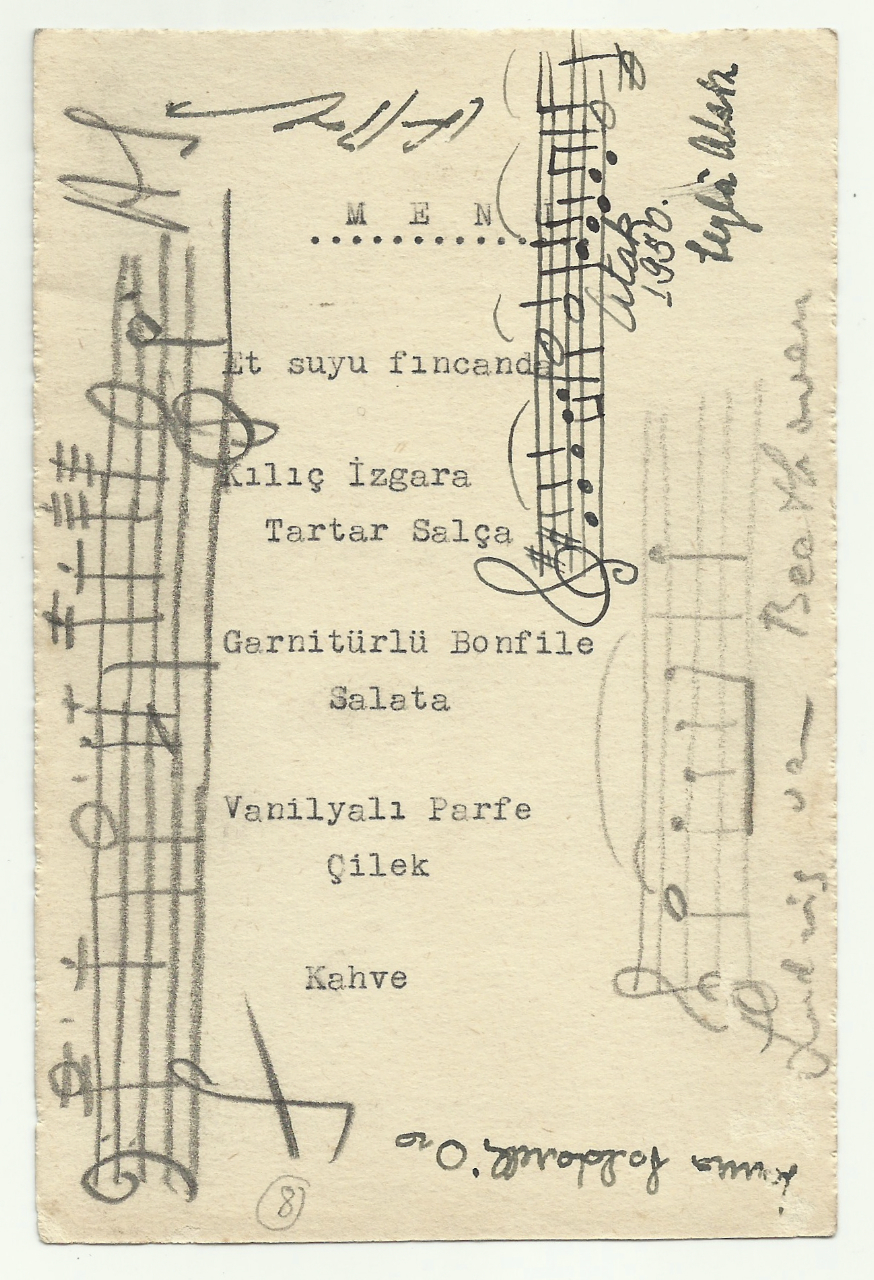 M E N U
Et suyu fıncanda
Kılıç İzgara
Tartar Salça
Garnitürlü Bonfile
Salata
Vanilyalı Parfe
Çilek
Kahve
1950.
Leylâ
Ludwig van Beethoven
8